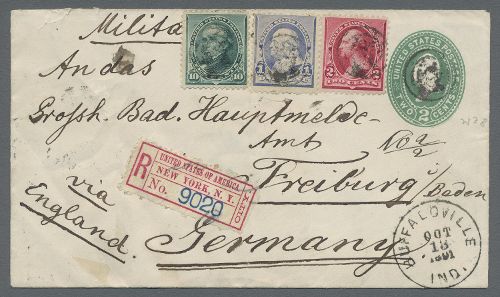 Milita
An das
10
1
2
UNITED STATES POSTAGE
TWO 2 CENTS
Grossh. Bad. Hauptmelde-
Amt
Freiburg i/Baden
via
England.
Germany
R
UNITED STATES OF AMERICA
NEW YORK, N. Y.
No. 9029
BUFFALOVILLE
OCT
13
1891
IND.